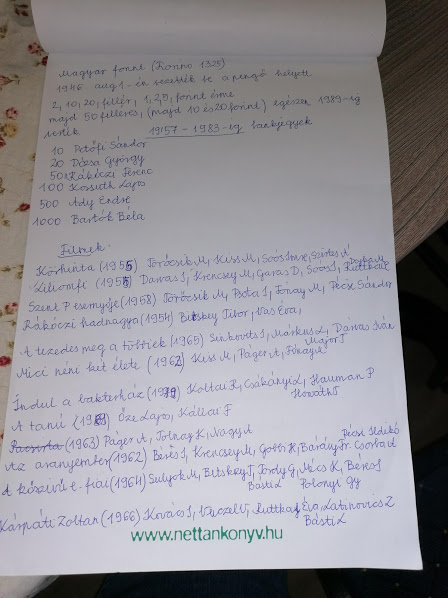 Magyar forint (Kónno 1325)
1946 aug 1-én vezették be a pengő helyett
2, 10, 20, fillér, 1, 2, 5, forint érme
majd 50 filléres, (majd 10 és 20 forint) egészen 1989-ig
verék.
1957-1983-ig bankjegyek
10 Petőfi Sándor
20 Dózsa György
50 Rákóczi Ferenc
100 Kossuth Lajos
500 Ady Endre
1000 Bartók Béla
Filmek:
Körhinta (1955) Törőcsik M, Kiss M, Soós Imre, Szirtes Á
Liliomfi (1954) Darvas I, Krencsey M, Garas D, Soós I, Ruttkai É
Szent P esernyője (1958) Törőcsik M, Psota I, Fónay M, Pécsi Sándor
Rákóczi hadnagya (1954) Bitskey Tibor, Vas Éva,
A tizedes meg a többiek (1965) Sinkovits I, Márkus L, Darvas Iván
Major T
Mici néni két élete (1962) Kiss M, Páger A, Fónay M
Indul a bakterház (1979) Koltai R, Csákányi L, Hauman P
Horváth T
A tanú (1969) Őze Lajos, Kállai F
Pacsirta (1963) Páger A, Tolnay K, Nagy A
Pécsi Ildikó
Az aranyember (1962) Béres I, Krencsey M, Gobbi H, Barány Fr. Csorba A
A kőszívű e. fiai (1964) Sulyok M, Bitskey T, Tordy G, Mécs K, Béres I
Básti L Polonyi Gy
Kárpáthi Zoltán (1966) Kovács I, Ruttkay Éva, Latinovics Z
Básti L
www.nettankonyv.hu